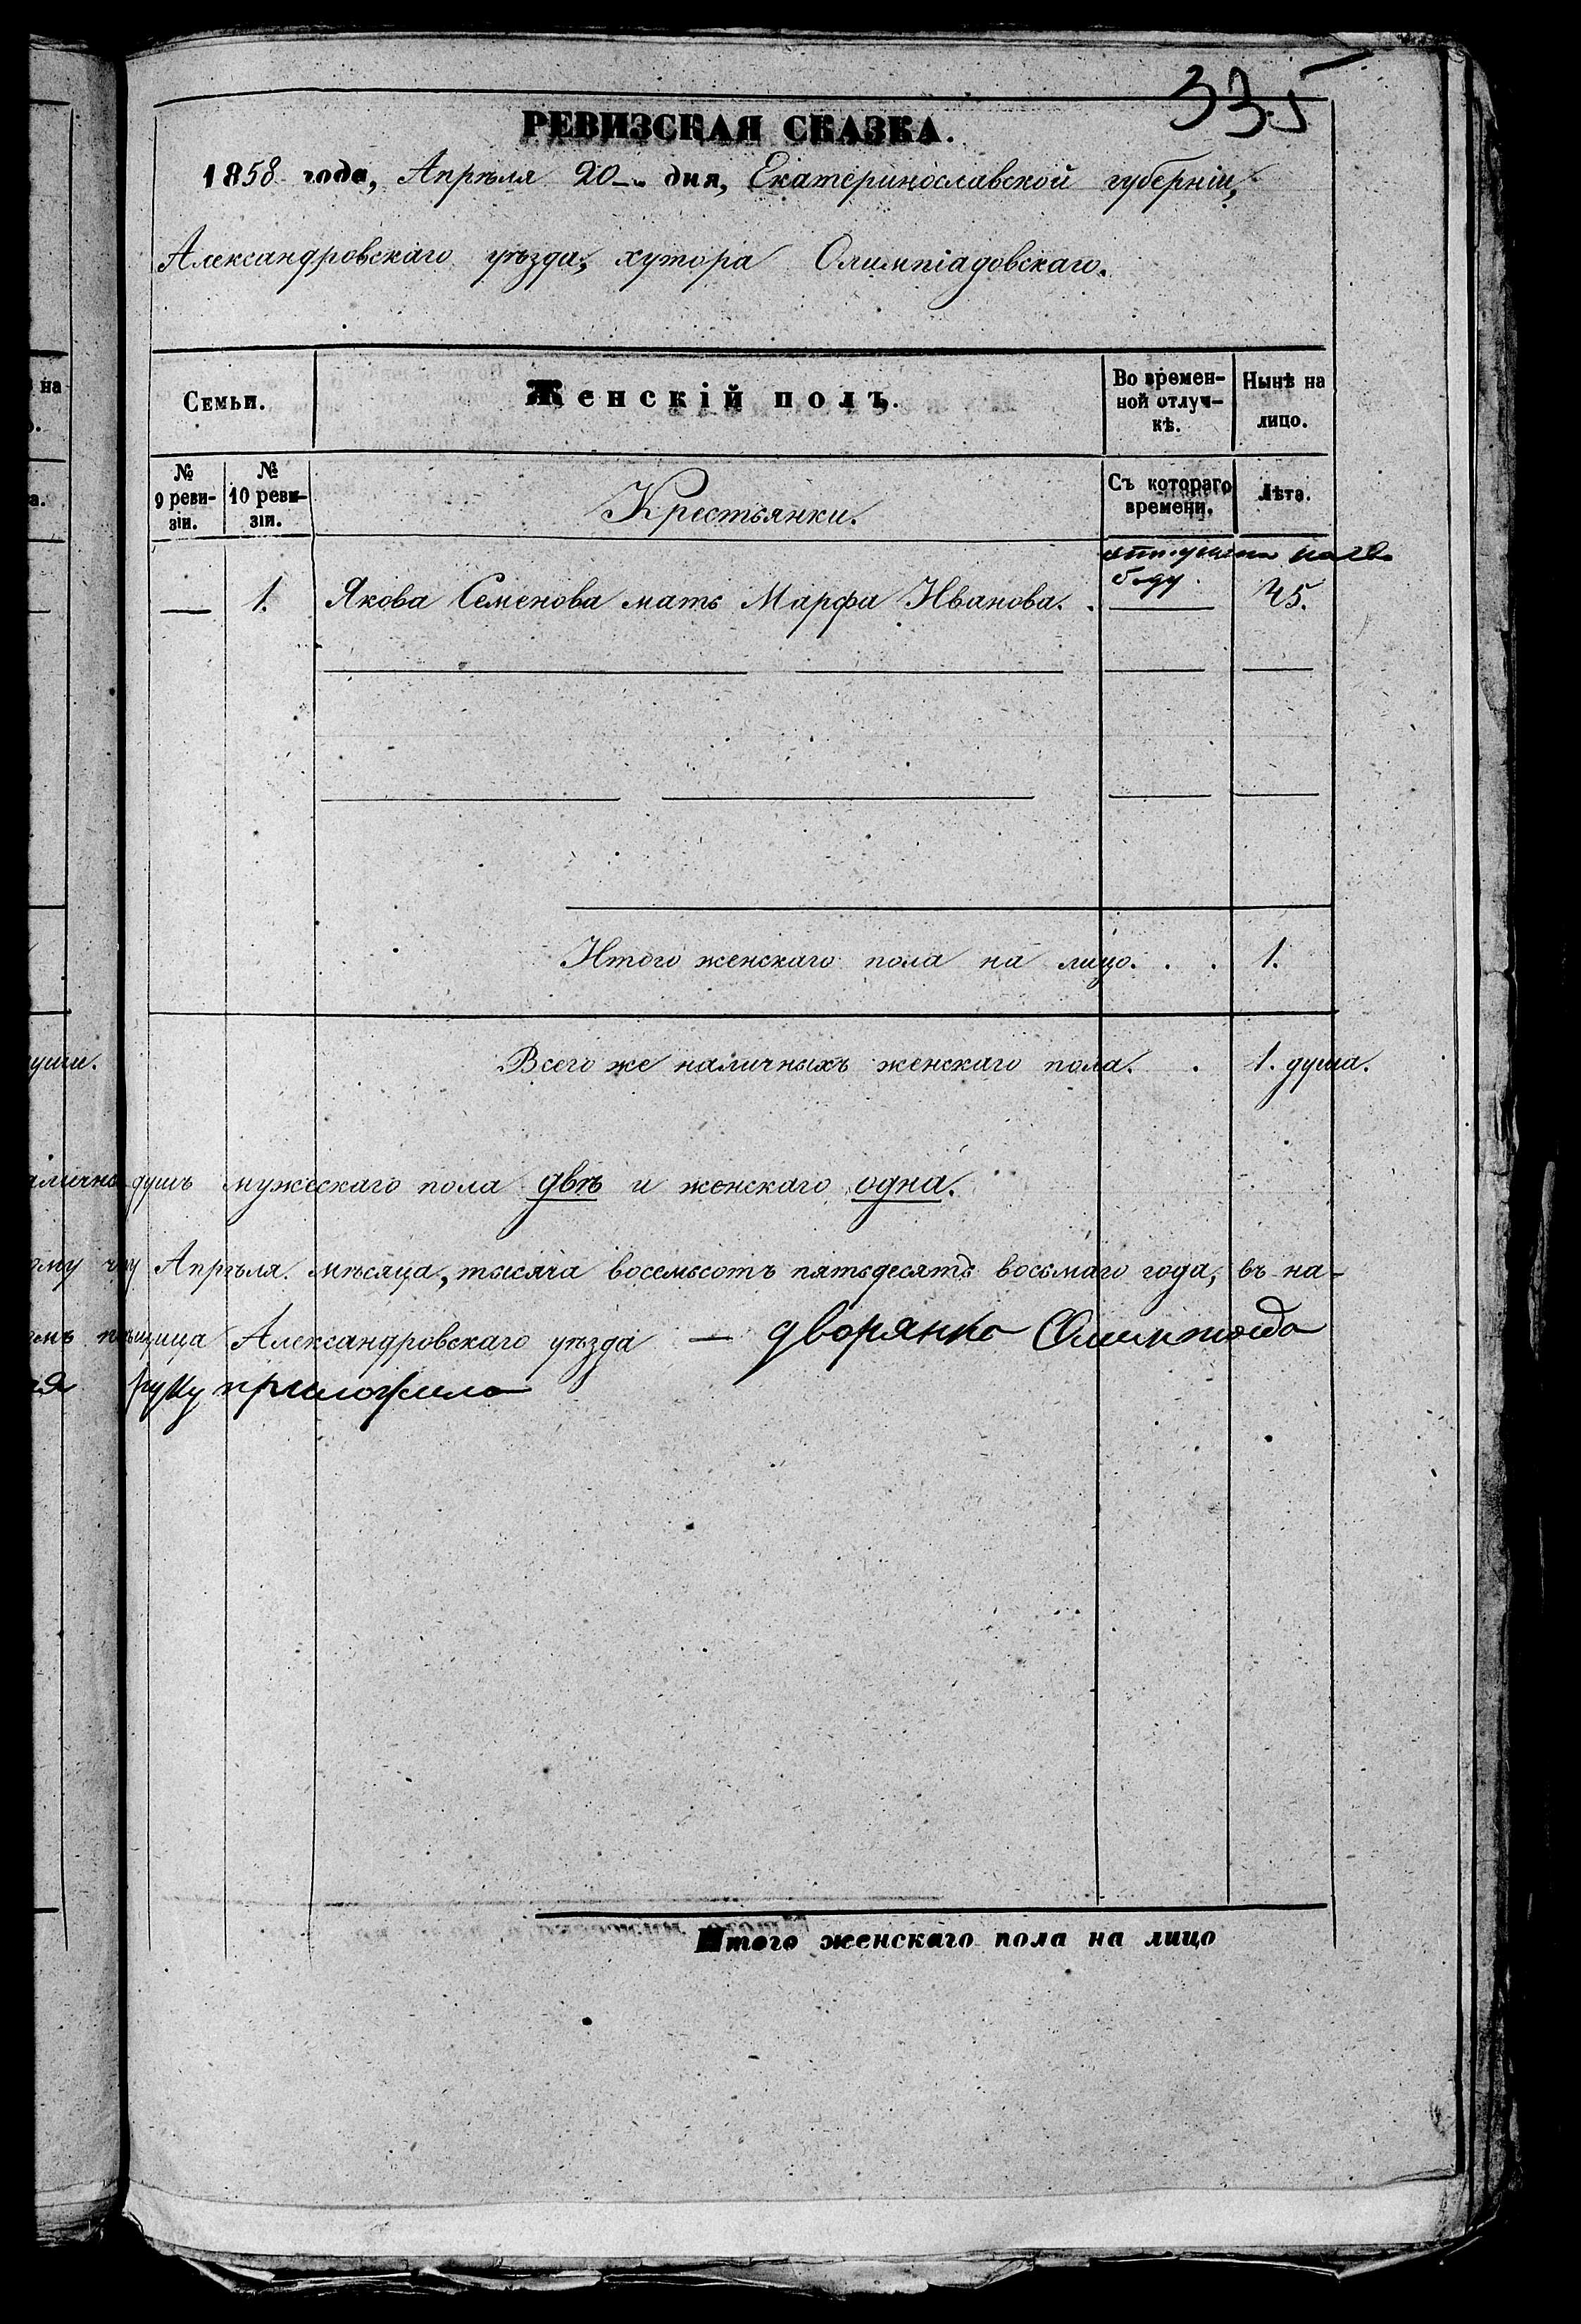 335
РЕВИЗСКАЯ СКАЗКА.
1858 года, Апрѣля 20 дня, Екатеринославской губерніи,
Александровскаго уѣзда, хутора Олимпіадовскаго.
Семьи.
Женскій полъ.
Во времен-
ной отлуч-
кѣ.
Нынѣ на
лицо.
№
9 реви-
зіи.
№
10 реви-
зіи.
Крестьянки.
Съ котораго
времени.
Лѣта.
отпущена на сво
боду.
— 1. Якова Семенова мать Марфа Иванова. . — 45.
Итого женскаго пола на лицо. . . 1.
Всего же наличныхъ женскаго пола. . 1. душа.
душъ мужескаго пола двѣ и женскаго одна.
Апрѣля мѣсяца, тысяча восемьсотъ пятьдесятъ восьмаго года, въ на-
Александровскаго уѣзда — дворянка Олимпіада
руку приложила
Итого женскаго пола на лицо